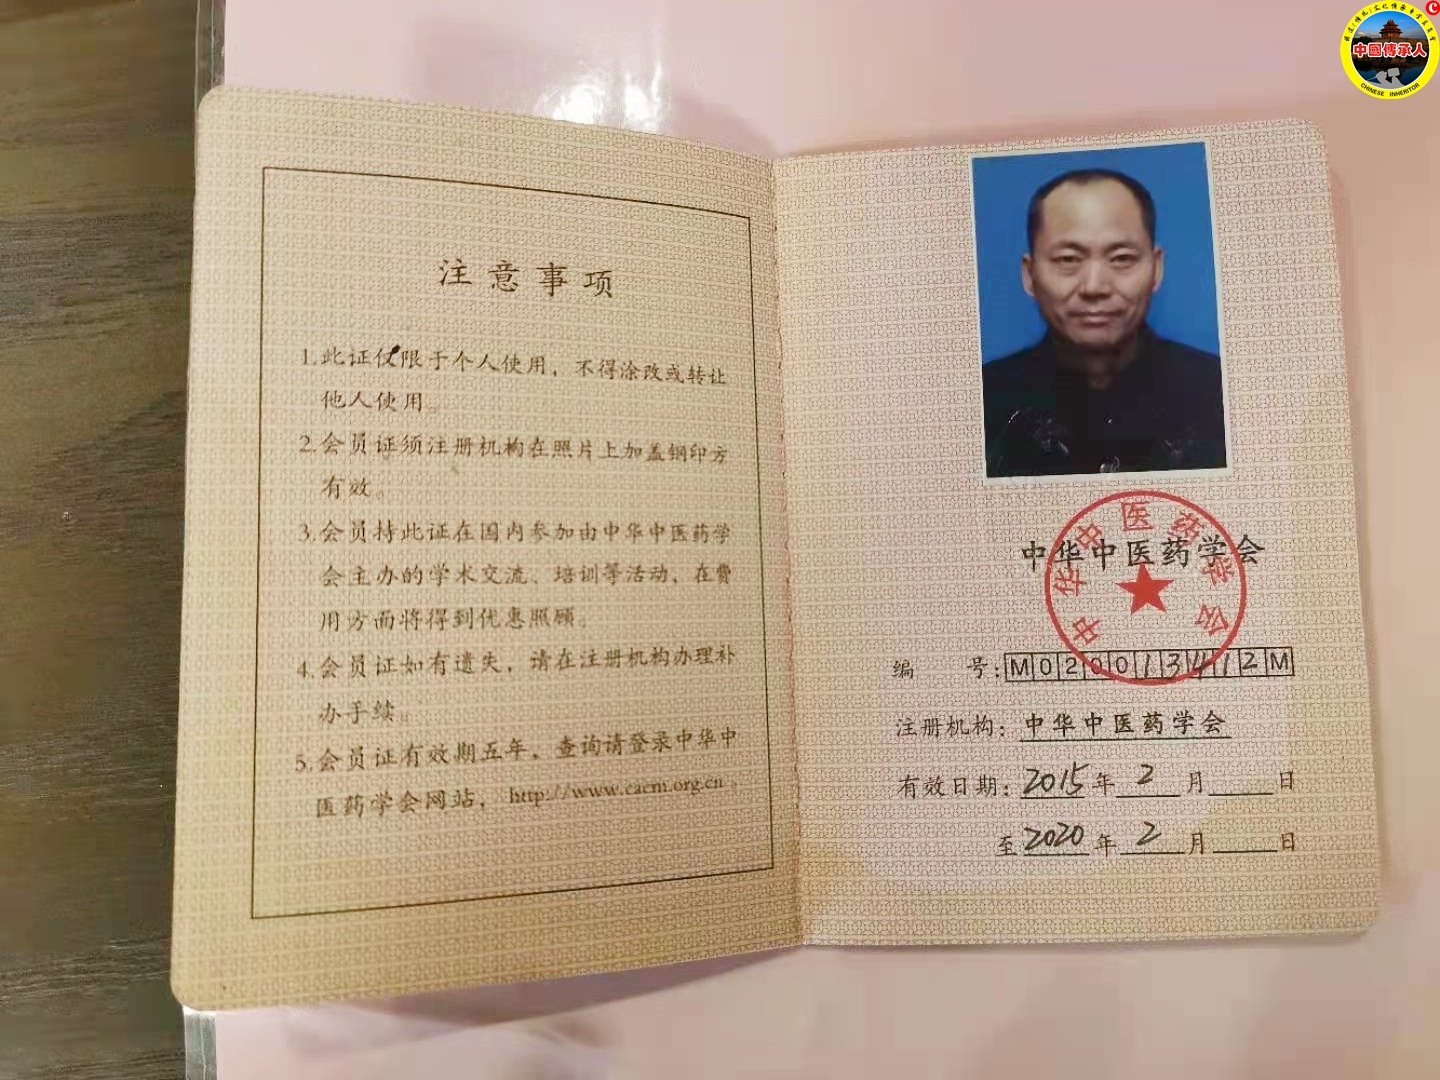 注意事项
1.此证仅限于个人使用，不得涂改或转让
他人使用。
2.会员证须注册机构在照片上加盖钢印方
有效。
3.会员持此证在国内参加由中华中医药学
会主办的学术交流、培训等活动，在费
用方面将得到优惠照顾。
4.会员证如有遗失，请在注册机构办理补
办手续。
5.会员证有效期五年，查询请登录中华中
医药学会网站，http://www.cacm.org.cn。
中华中医药学会
中华中医药学会
编 号：M020013412M
注册机构：中华中医药学会
有效日期：2015年2月 日
至2020年2月 日
中國傳承人
CHINESE INHERITOR
C